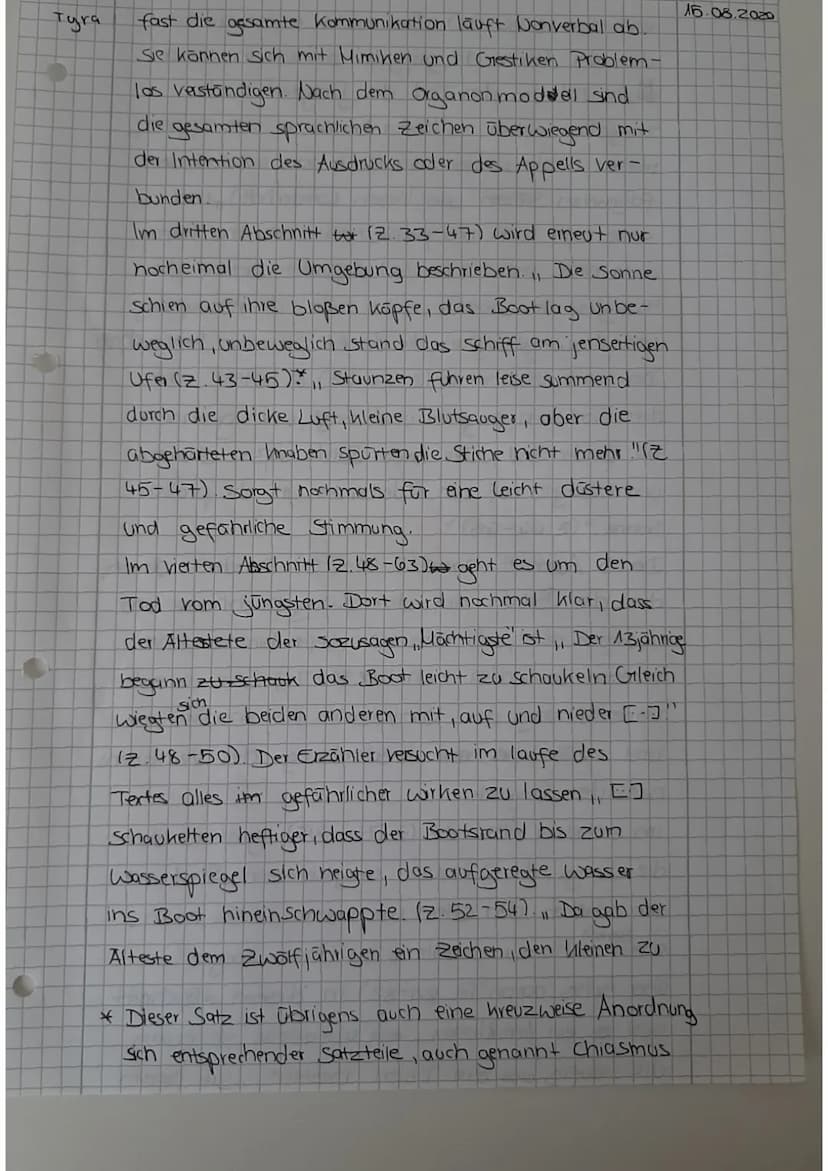 Tyra
15.08.2020
fast die gesamte Kommunikation läuft Nonverbal ab.
Sie können sich mit Mimiken und Gestiken Problem-
los veständigen. Nach dem Organonmodell sind
die gesamten sprachlichen Zeichen überwiegend mit
der Intention des Ausdrucks oder des Appells ver-
bunden.
Im dritten Abschnitt (Z. 33-47) wird erneut nur
nocheimal die Umgebung beschrieben. „Die Sonne
schien auf ihre bloßen köpfe, das Boot lag unbe-
weglich, unbeweglich stand das schiff am jensertigen
Ufer (Z. 43-45)*. „Staunzen fuhren leise summend
durch die dicke Luft, kleine Blutsauger, aber die
abgehärteten Knaben spürten die Stiche nicht mehr "(Z
45-47). Sorgt nochmals für eine leicht düstere
und gefährliche Stimmung.
Im vierten Abschnitt (Z. 48-63) geht es um den
Tod vom jüngsten. Dort wird nochmal klar, dass
der Ältestete der sozusagen „Mächtigste" ist „Der 13jährige
begann zu schauk das Boot leicht zu schaukeln Gleich
wiegten sich die beiden anderen mit, auf und nieder [...]"
(Z. 48-50). Der Erzähler versucht im laufe des
Textes alles im gefährlicher wirken zu lassen „[...]
schaukelten heftiger, dass der Bootsrand bis zum
Wasserspiegel sich neigte, das aufgeregte wasser
ins Boot hineinschwappte. (Z. 52-54). „Da gab der
Älteste dem Zwölfjährigen ein Zeichen, den kleinen zu
* Dieser Satz ist übrigens auch eine kreuzweise Anordnung
sich entsprechender Satzteile, auch genannt Chiasmus